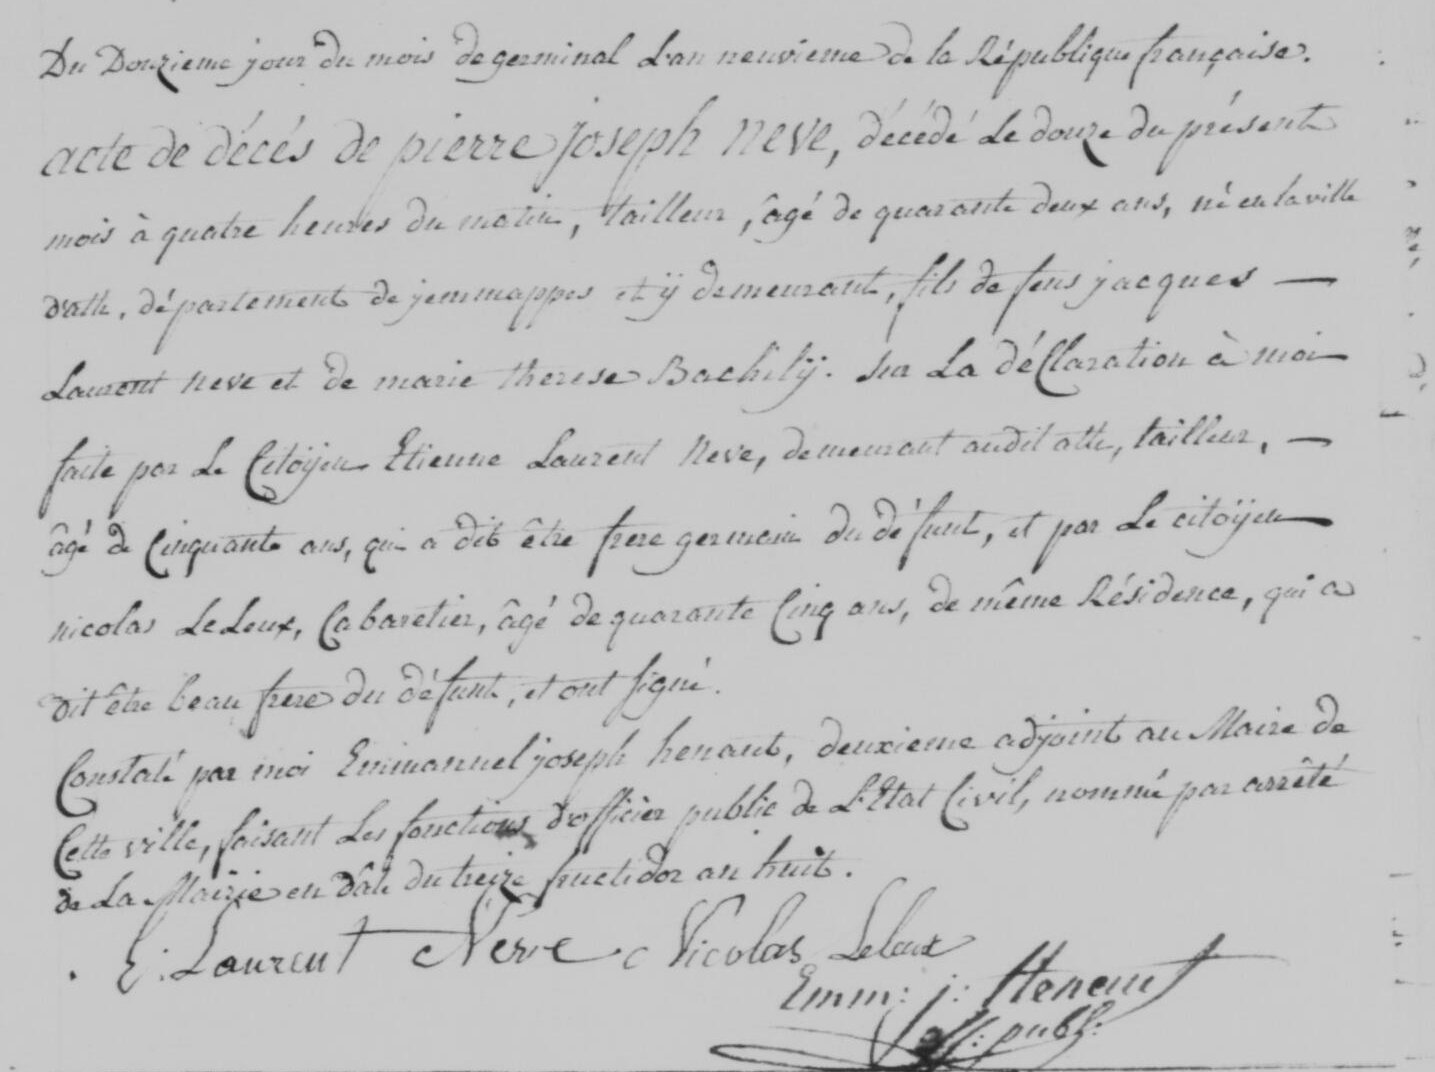 Du Douzieme jour du mois de germinal L'an neuvieme de la République française.
acte de décés de pierre joseph Neve, décédé Le douze du présent
mois à quatre heures du matin, tailleur, âgé de quarante deux ans, né en la ville
d'ath, département de jemmappes et ÿ demeurant, fils de feus jacques —
Laurent Neve et de marie therese Bachilÿ. sur La déClaration à moi
faite par Le Citöÿen Etienne Laurent Neve, demeurant audit ath, tailleur, —
âgé de Cinquante ans, qui a dit être frere germain du défunt, et par Le citöÿen
nicolas LeLeux, Cabaretier, âgé de quarante Cinq ans, de même Résidence, qui a
dit être beau frere du défunt, et ont signé.
Constaté par moi Emmanuel joseph henaut, deuxieme adjoint au Maire de
Cette ville, faisant Les fonctions d'officier public de L'Etat Civil, nommé par arrêté
de La Mairie en date du treize fructidor an huit.
E: Laurent Neve Nicolas Leleux
Emm: j: Henaut
off: publ: